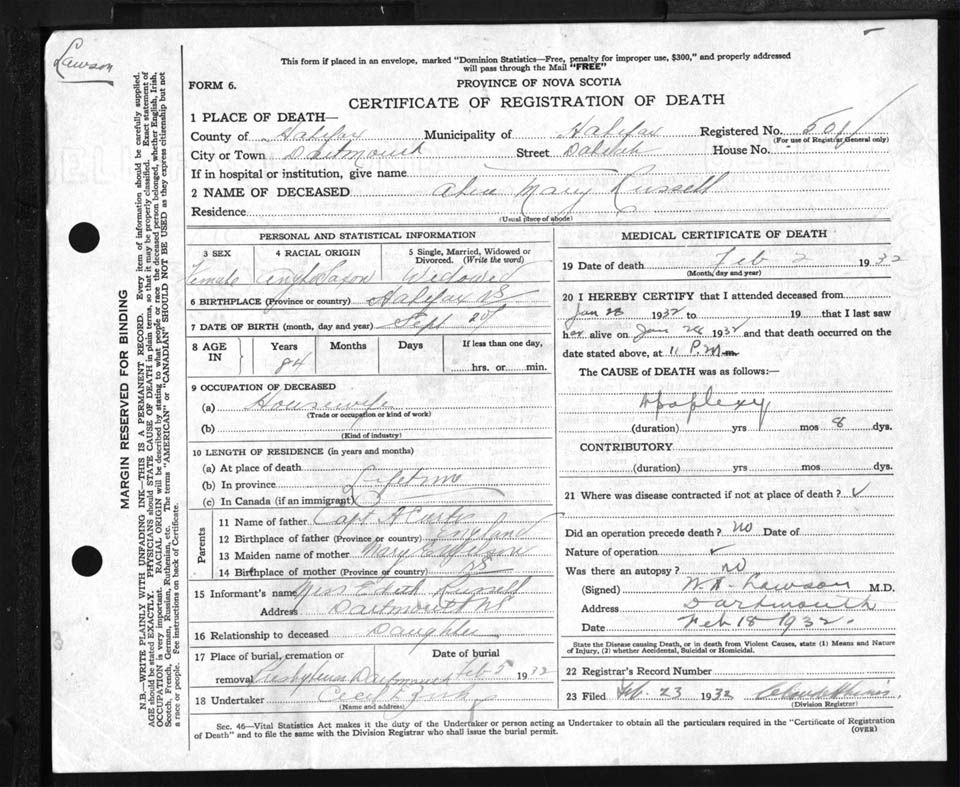 Lawson
This form if placed in an envelope, marked "Dominion Statistics—Free, penalty for improper use, $300," and properly addressed
will pass through the Mail "FREE"
FORM 6.
PROVINCE OF NOVA SCOTIA
CERTIFICATE OF REGISTRATION OF DEATH
1 PLACE OF DEATH—
County of Halifax Municipality of Halifax Registered No.
(For use of Registrar General only)
City or Town Dartmouth Street House No.
If in hospital or institution, give name
2 NAME OF DECEASED Alice Mary Russell
Residence
(Usual place of abode)
PERSONAL AND STATISTICAL INFORMATION
3 SEX 4 RACIAL ORIGIN 5 Single, Married, Widowed or Divorced. (Write the word)
Female Anglo Saxon Widowed
6 BIRTHPLACE (Province or country) Halifax NS
7 DATE OF BIRTH (month, day and year) Sept
8 AGE IN Years Months Days If less than one day,
84 hrs. or min.
9 OCCUPATION OF DECEASED
(a) Housewife
(Trade or occupation or kind of work)
(b)
(Kind of industry)
10 LENGTH OF RESIDENCE (in years and months)
(a) At place of death
(b) In province Lifetime
(c) In Canada (if an immigrant)
Parents
11 Name of father Capt
12 Birthplace of father (Province or country) England
13 Maiden name of mother Mary
14 Birthplace of mother (Province or country) NS
15 Informant's name Miss Russell
Address Dartmouth NS
16 Relationship to deceased Daughter
17 Place of burial, cremation or Date of burial
removal Presbyterian Dartmouth Feb 5 1932
18 Undertaker Cecil E.
(Name and address)
MEDICAL CERTIFICATE OF DEATH
19 Date of death Feb 2 1932
(Month, day and year)
20 I HEREBY CERTIFY that I attended deceased from
Jan 28 1932 to 19 that I last saw
her alive on Jan 1932 and that death occurred on the
date stated above, at 11 P.M. m.
The CAUSE of DEATH was as follows:—
Apoplexy
(duration) yrs mos 8 dys.
CONTRIBUTORY
(duration) yrs mos dys.
21 Where was disease contracted if not at place of death? ✓
Did an operation precede death? No Date of
Nature of operation ✓
Was there an autopsy? No
(Signed) Lawson M.D.
Address Dartmouth
Date Feb 18 1932.
State the Disease causing Death, or in death from Violent Causes, state (1) Means and Nature
of Injury, (2) whether Accidental, Suicidal or Homicidal.
22 Registrar's Record Number
23 Filed Feb. 23 1932
(Division Registrar)
Sec. 46—Vital Statistics Act makes it the duty of the Undertaker or person acting as Undertaker to obtain all the particulars required in the "Certificate of Registration
of Death" and to file the same with the Division Registrar who shall issue the burial permit.
(OVER)
MARGIN RESERVED FOR BINDING
N.B.—WRITE PLAINLY WITH UNFADING INK—THIS IS A PERMANENT RECORD. Every item of information should be carefully supplied.
AGE should be stated EXACTLY. PHYSICIANS should STATE CAUSE OF DEATH in plain terms, so that it may be properly classified. Exact statement of
OCCUPATION is very important. RACIAL ORIGIN will be described by stating to what people or race the deceased person belonged, whether English, Irish,
Scotch, French, German, Russian, Ruthenian, etc. The terms "AMERICAN" or "CANADIAN" SHOULD NOT BE USED as they express citizenship but not
a race or people. Fee instructions on back of Certificate.